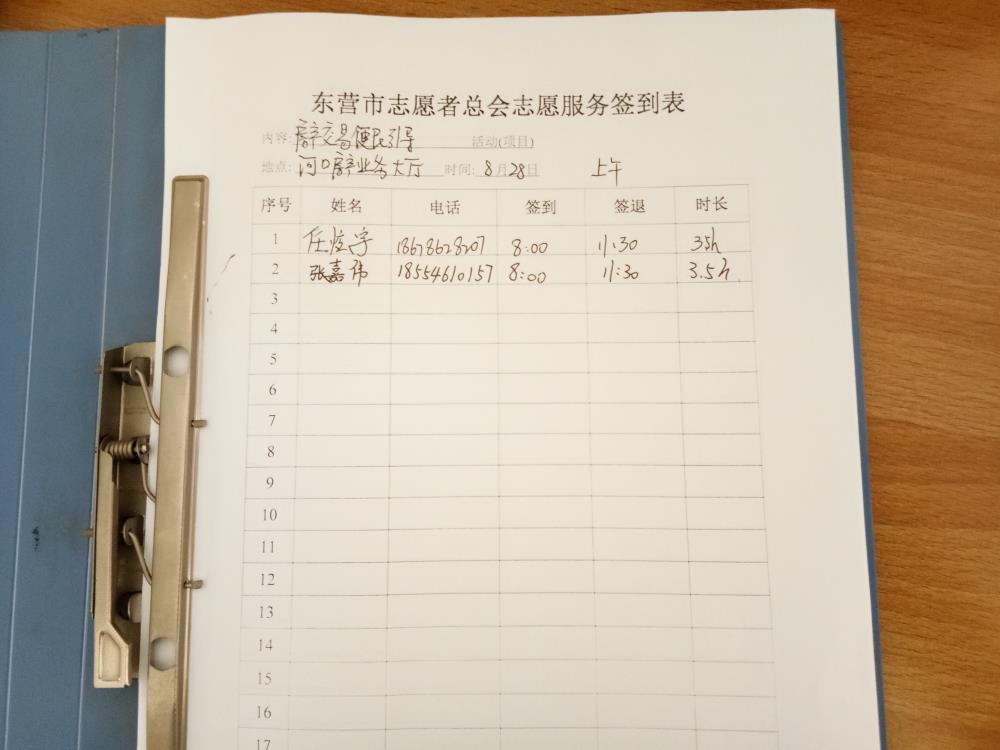 东营市志愿者总会志愿服务签到表
内容: 房产交易便民引导 活动(项目)
地点: 河口房产业务大厅 时间: 8月28日 上午
序号 姓名 电话 签到 签退 时长
1 任 宇 18678628207 8:00 11:30 35h
2 张嘉伟 18554610157 8:00 11:30 3.5h
3
4
5
6
7
8
9
10
11
12
13
14
15
16
17